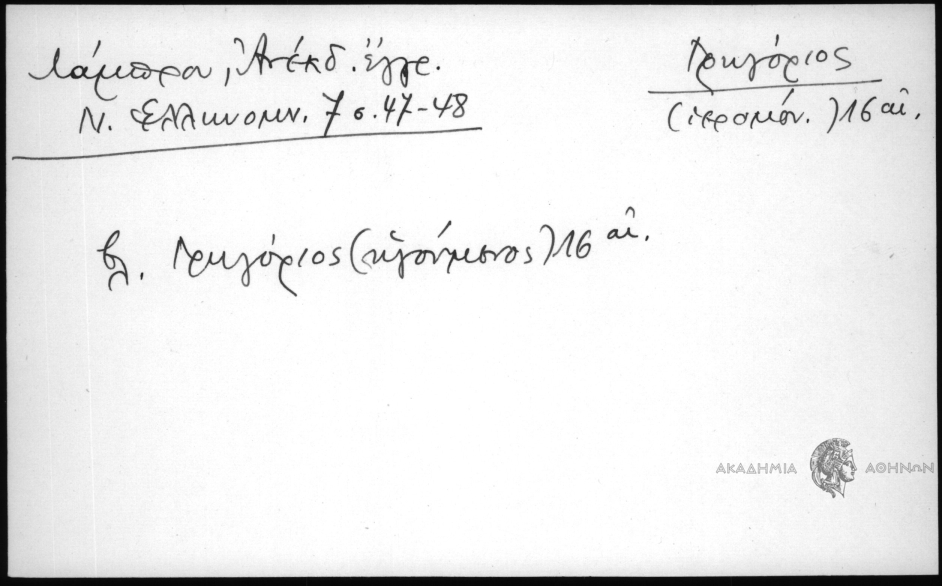 Λάμπρου, Ἀνέκδ. ἔγγρ.
Ν. Ἑλληνομν. 7 σ. 47-48
Γρηγόριος
(ἱερομόν.) 16 αἰ.
βλ. Γρηγόριος (ἡγούμενος) 16 αἰ.
ΑΚΑΔΗΜΙΑ ΑΘΗΝΩΝ